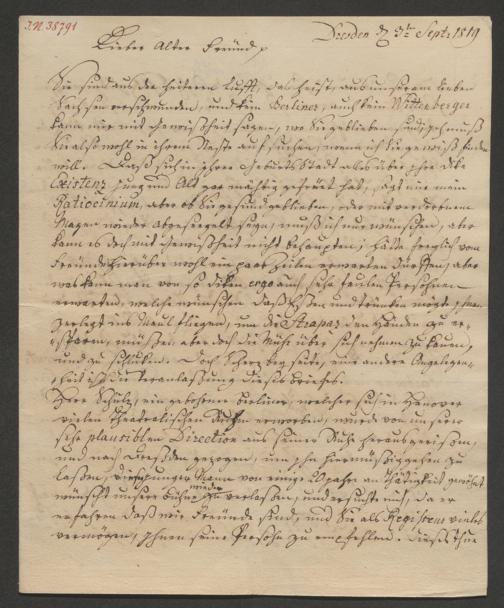 I.N. 38791
Dresden d 3ᵗ Sept: 1819
Lieber Alter Freünd,
Sie sind aus der heiteren Lufft, das heist, aus unserem lieben
Sachsen verschwunden, und kein Berliner, auch kein Wittenberger
kann mir mit Gewisheit sagen, wo Sie geblieben sind, ich muß
Sie also wohl in ihrem Neste aufsuchen, wenn ich Sie gewiß finden
will. Daß sich in ihrer Geburts Stadt alles über ihre dike
Existenz, Jung und Alt gar mächtig gefreut hat, sagt mir mein
Ratiocinium, aber ob Sie gesund geblieben, oder mit verdorbnem
Magen wieder abgesegelt seyn, muß ich nur wünschen, aber
kann es doch mit Gewisheit nicht behaupten; hätte freylich vom
Freünde hierüber wohl ein paar Zeilen erwarten dürffen, aber
was kann man von so diken ergo auch sehr faulen Persohnen
erwarten, welche wünschen daß Essen und Trinken möge ihnen
zerlegt ins Maul fliegen, um die Strapaz den Händen zu er-
sparen, müssen aber doch die Mühe über sich nehmen zu kauen,
und zu schluken. Doch Scherz bey seite, eine andere Angelegen-
heit ist die Veranlassung dieses briefes.
Herr Schütz, ein gebohrner Berliner, welcher sich in Hanover
vielen theatralischen Ruhm erworben, wurde von unserer
sehr plausiblen Direction aus seiner Ruhe herausgerissen,
und nach Dresden gezogen, um ihn hier müßig gehen zu
laßen, dieser junge Mann von einige 20 Jahren an Thätigkeit gewöhnt
wünscht unsere Bühne wieder zu verlassen, und ersucht mich, da er
erfahren daß wir Freünde sind, und Sie als Regisseur vieles
vermögen, Ihnen seine Persohn zu empfehlen. Dieses thue